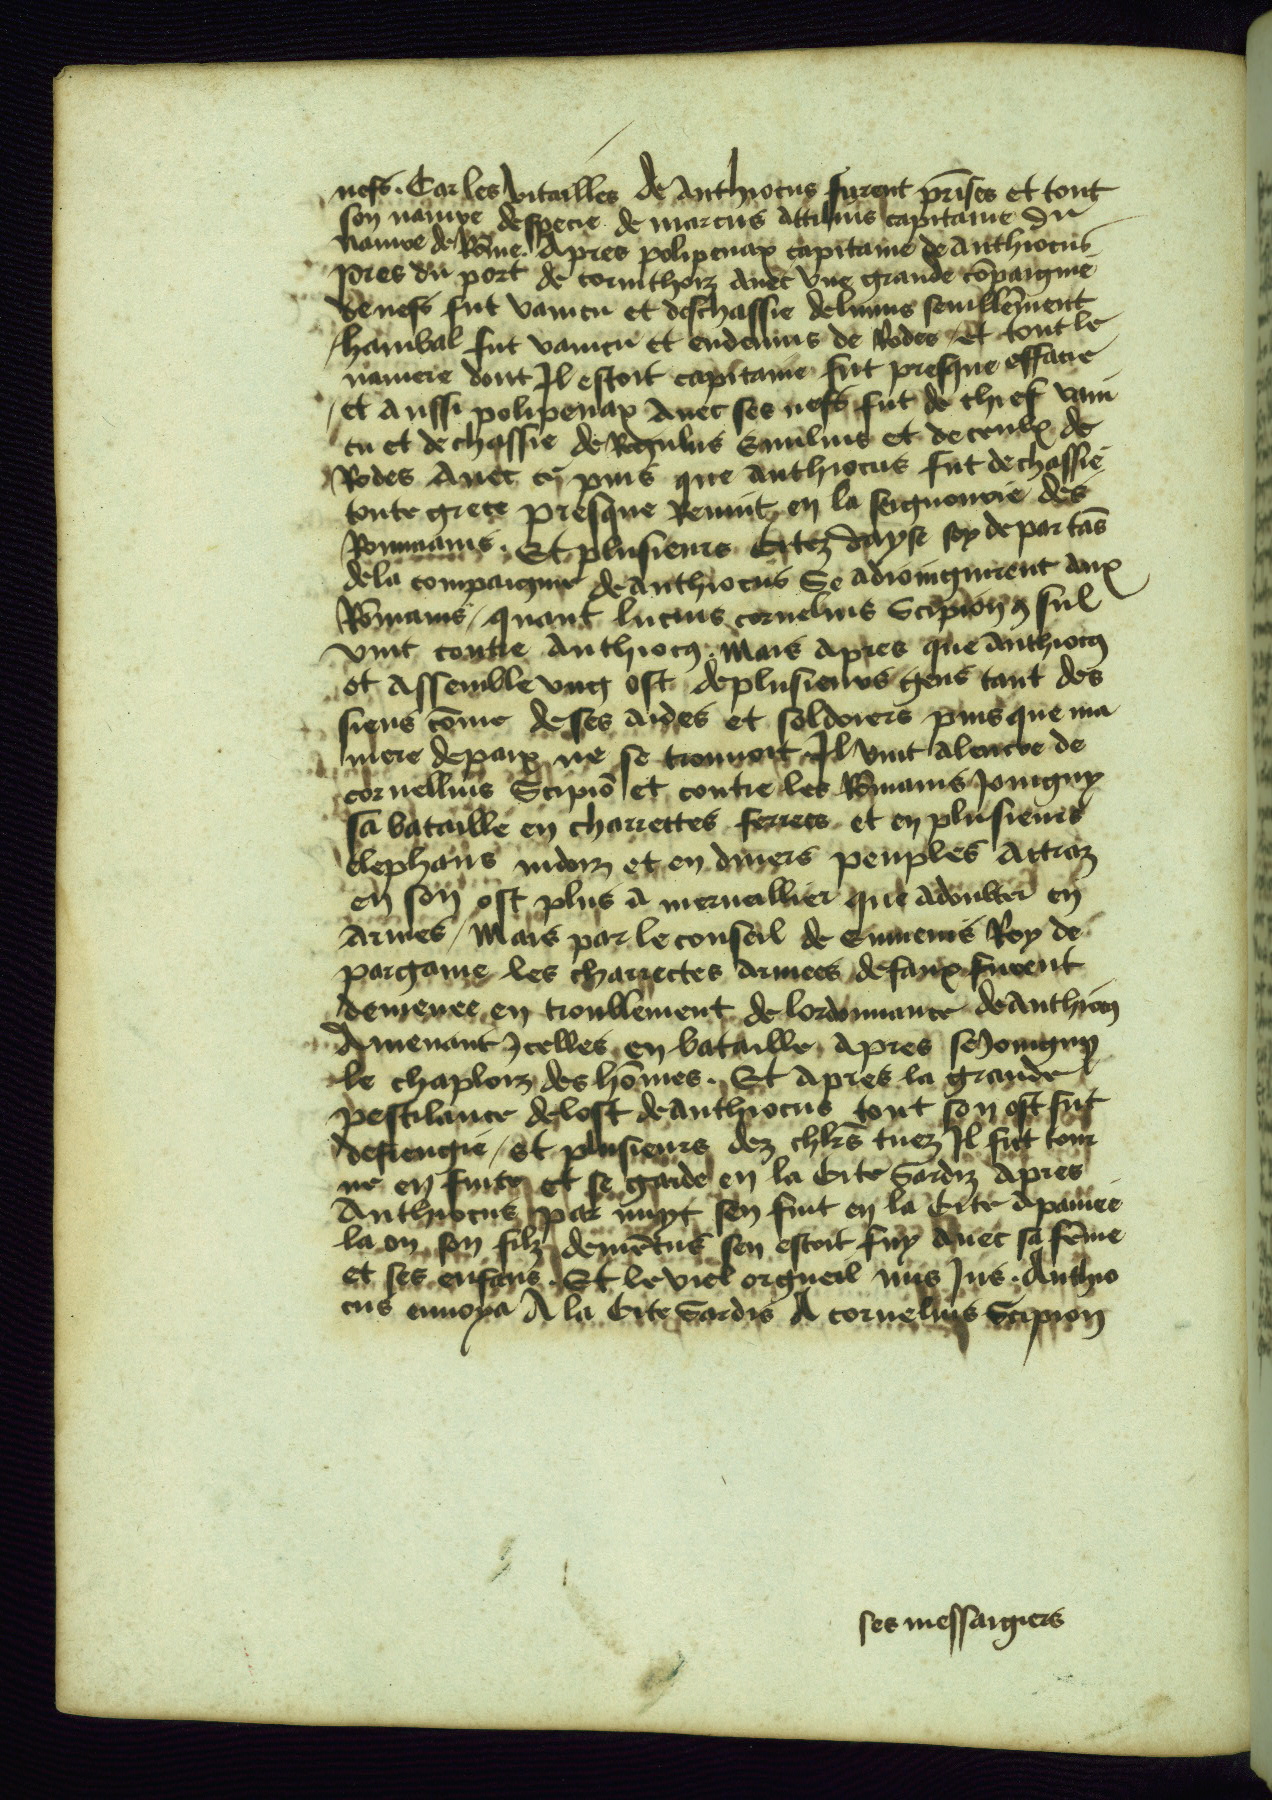 nefs. Car les vitailles de Anthiocus furent prīses et tout
son nauire despecie de marcus Attilius capitaine du
nauire de Rōme. Apres polipenax capitaine de Anthiocus
pres du port de corinthoiz Auec vne grande cōpaignie
de nefs fut vaincu et deschassie de liuius semblem̄ent
/ hanibal fut vaincu et eudemus de Rodes / et tout le
nauiere dont Il estoit capitaine fut presque effacie
/ et Aussi polipenax Auec ses nefs fut de chief vain
cu et dechassie de Regulus Emilius et de ceulx de
Rodes Auec ce puis que Anthiocus fut dechassie
toute grece presque Reuint en la seignourie des
Rommains. Et plusieurs Citez dayse soy departās
de la compaignie de Anthiocus Se adioingnirent aux
Rōmains / quant lucius cornelius Scipion 9sul
vint contre Anthioc9. Mais Apres que Anthioc9
et Assemble vng ost de plusieurs gens tant des
siens cōme de ses aides et soldoiers puis que ma
niere de paix ne se trouuoit Il vint alencōe de
cornellius Scipiō et contre les Rōmains Joingny
sa bataille en charrettes ferrees et en plusieurs
elephans indoiz et en diuers peuples Attraiz
en son ost plus a merueillier que adoubter en
Armes / Mais par le conseil de Eumenis Roy de
pargame les charrectes Armees de faux furent
demenee en troublement de lordonnance de Anthioc9
Amenant Jcelles en bataille Apres se Joingny
le chaploiz des hōmes. Et Apres la grande
pestilance de lost de Anthiocus tout son ost fut
desrengie / et plusieurs dez chl̄rs tuez Il fut tour
ne en fuite et se garde en la Cite Sardiz Apres
Anthiocus par nuyt sen fuit en la Cite Apamee
la ou son filz demētus sen estoit fuy Auec sa fēme
et ses enfans. Et le viel orgueil mis Jus. Anthio
cus enuoya A la Cite Sardis A cornelius Scipion
ses messaigiers